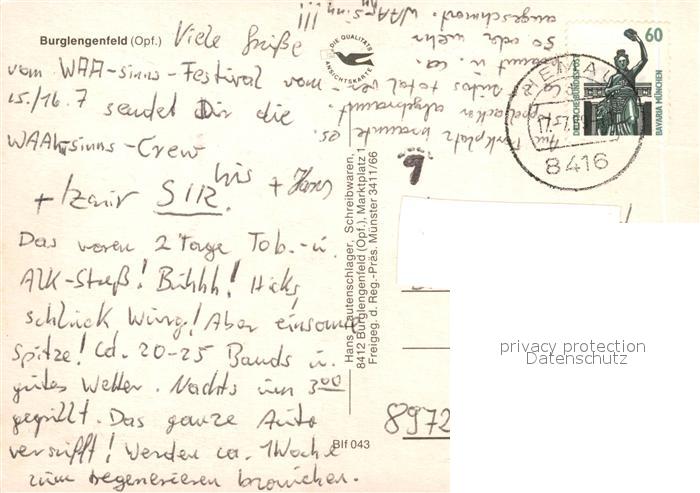 Burglengenfeld (Opf.)
Viele Grüße
vom WAA-sinns-Festival vom
15./16.7 sendet Dir die
WAAhnsinns-Crew
+ SIR. +
Das waren 2 Tage Tob.- u.
ALK-Streß! Bühhh! Hicks,
schluck Würg! Aber einsame
Spitze! Ca. 20-25 Bands u.
gutes Wetter. Nachts um 3 00
gegrillt. Das ganze Auto
versifft! Werden ca. 1 Woche
zum regenerieren brauchen.
Am Parkplatz brannte es.
abgebrannt.
u. ca. 2 Autos total ver-
brannt u. ca.
50 oder mehr
angeschmort. WAA-sinn!!!
DIE QUALITÄTS
ANSICHTSKARTE
Hans Lautenschlager, Schreibwaren,
8412 Burglengenfeld (Opf.), Marktplatz 1
Freigeg. d. Reg.-Präs. Münster 3411/66
Blf 043
60
DEUTSCHE BUNDESPOST
BAVARIA MÜNCHEN
17.-7.
8416
8972
privacy protection
Datenschutz